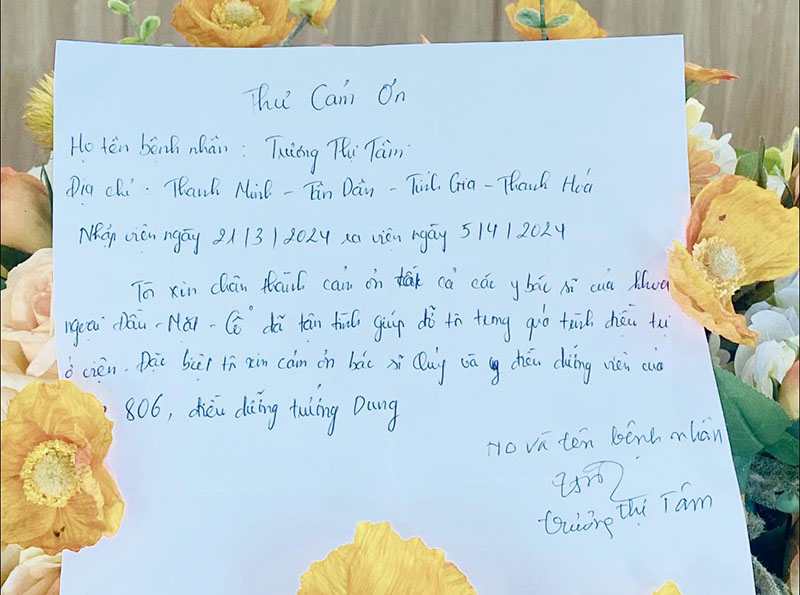 Thư Cảm Ơn
Họ tên bệnh nhân : Trương Thị Tâm
Địa chỉ : Thanh Minh - Tân Dân - Tĩnh Gia - Thanh Hoá
Nhập viện ngày 21/3/2024 ra viện ngày 5/4/2024
Tôi xin chân thành cảm ơn tất cả các y bác sĩ của khoa
ngoại Đầu - Mặt - Cổ đã tận tình giúp đỡ tôi trong quá trình điều trị
ở viện. Đặc biệt tôi xin cảm ơn bác sĩ Quý và điều dưỡng viên của
806, điều dưỡng trưởng Dung
Họ và tên bệnh nhân
Trương Thị Tâm